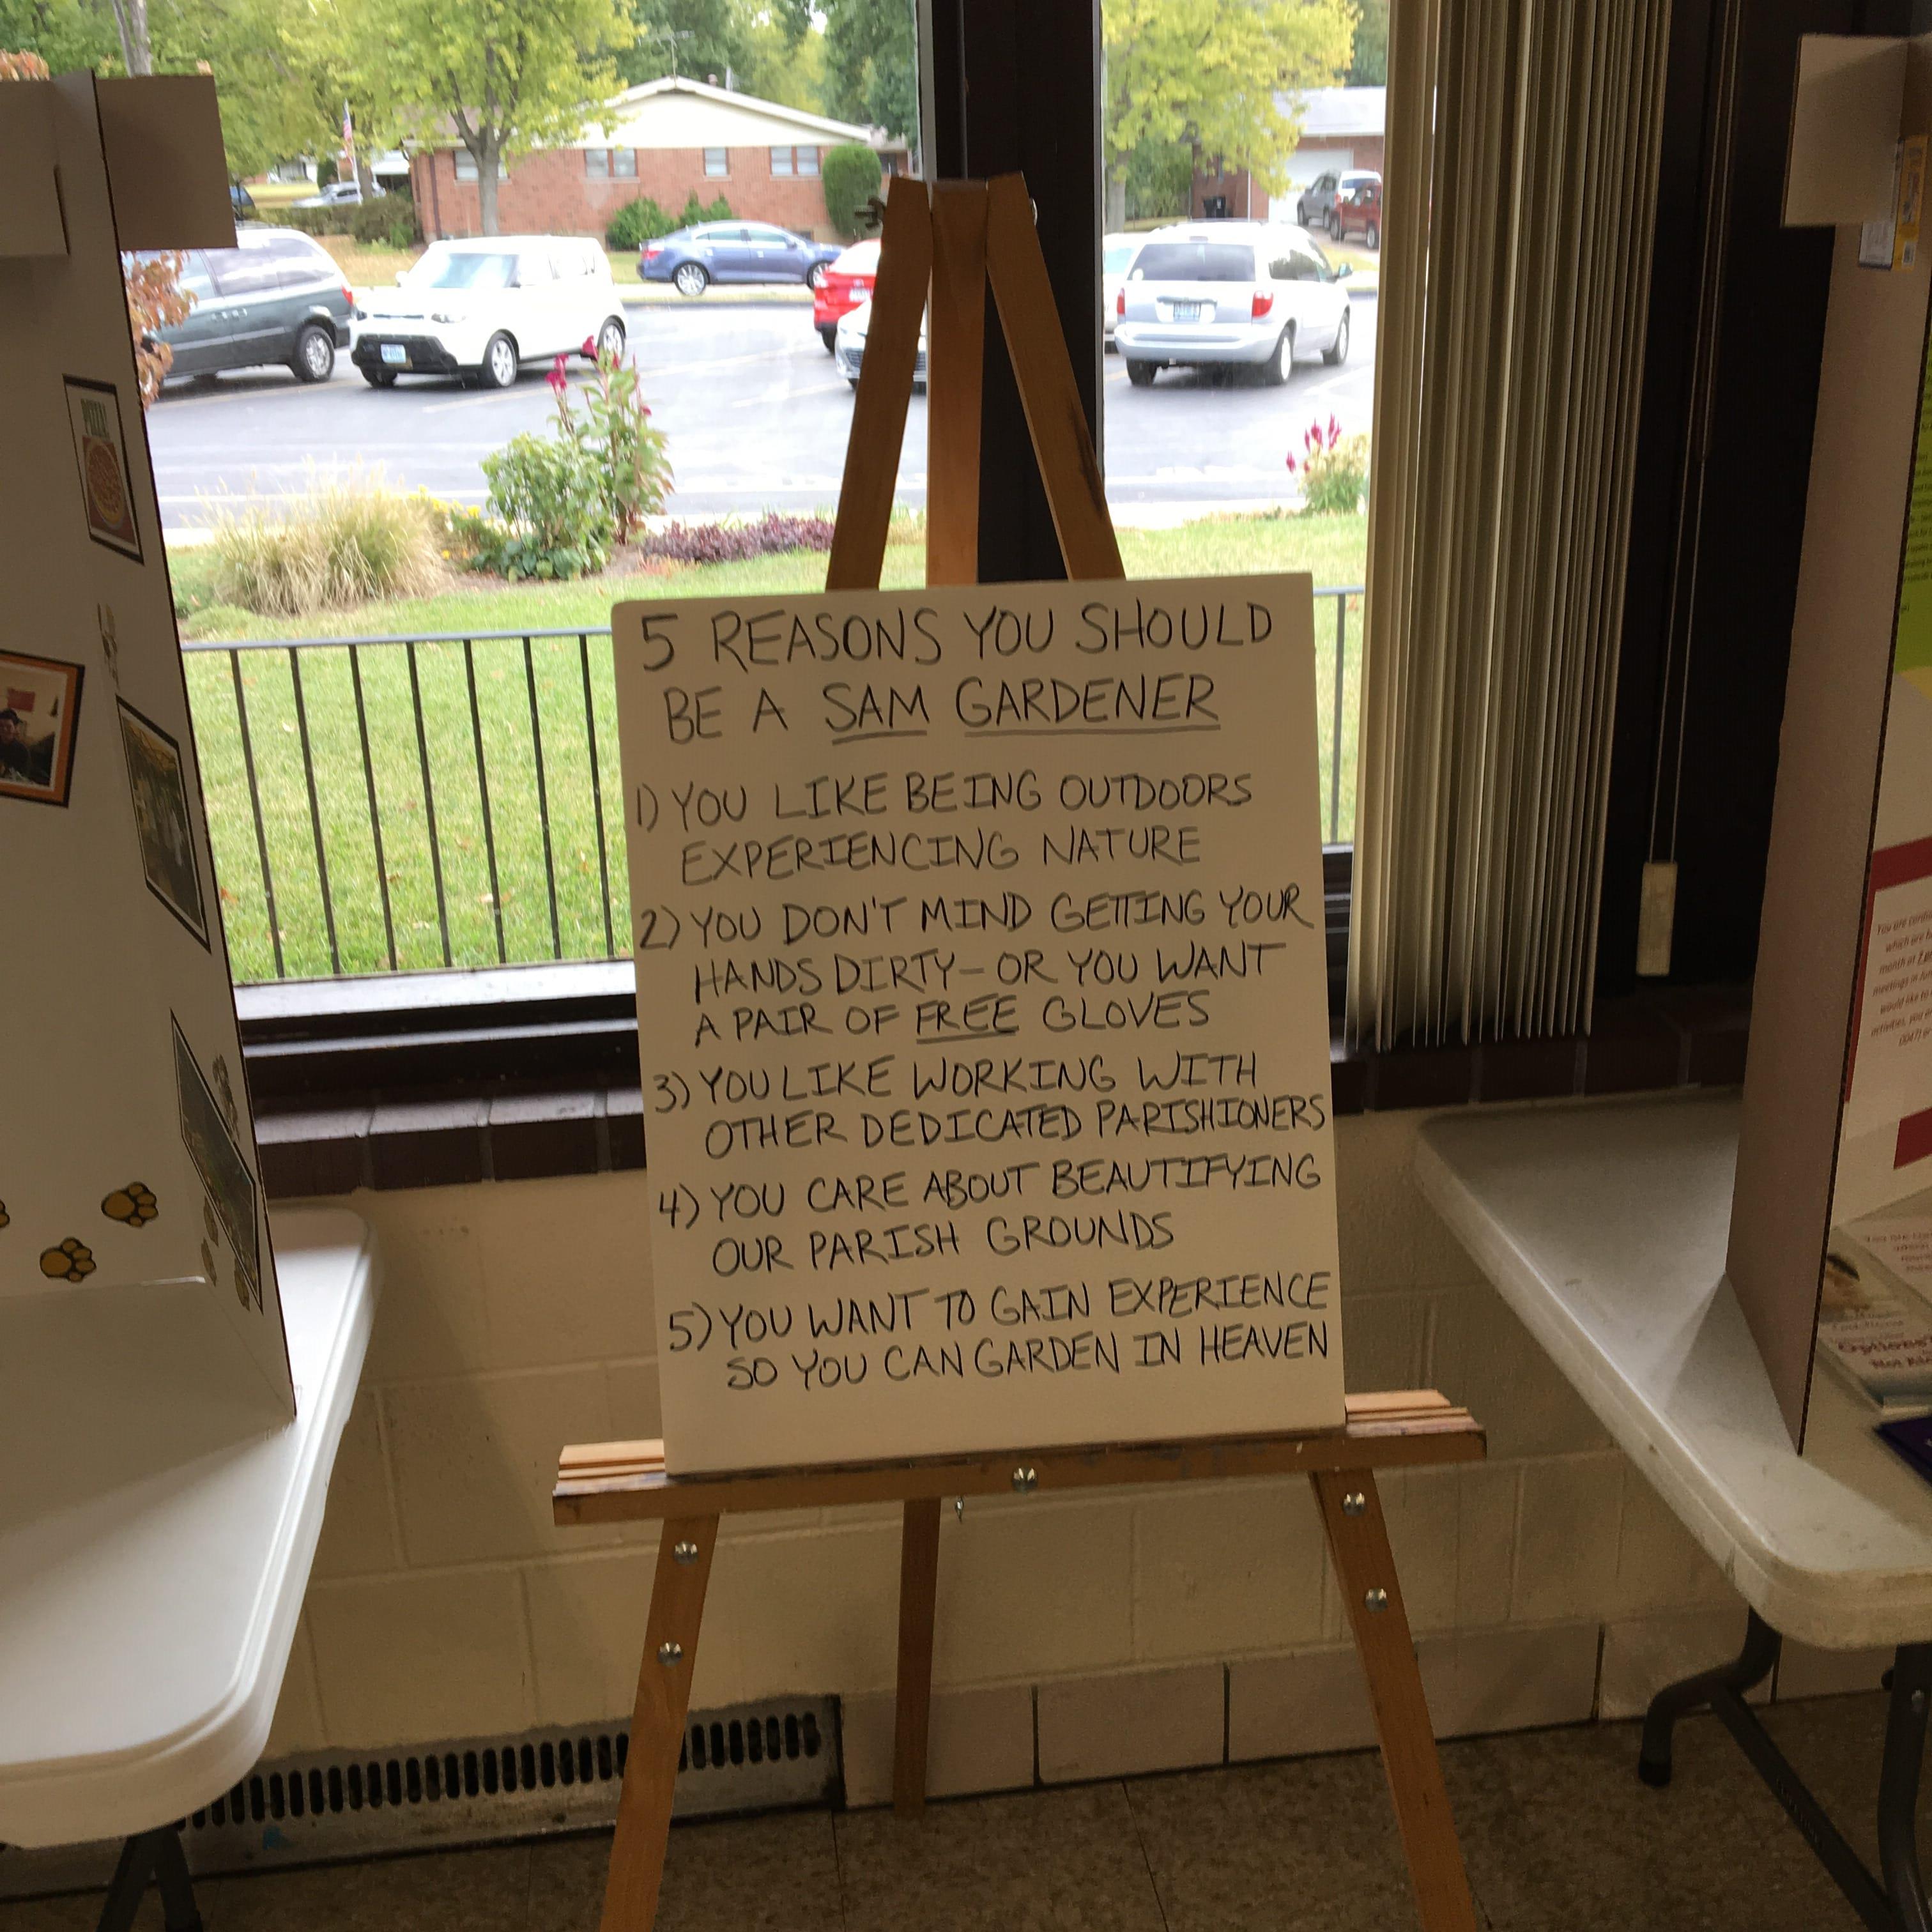 5 REASONS YOU SHOULD
BE A SAM GARDENER
1) YOU LIKE BEING OUTDOORS
EXPERIENCING NATURE
2) YOU DON'T MIND GETTING YOUR
HANDS DIRTY - OR YOU WANT
A PAIR OF FREE GLOVES
3) YOU LIKE WORKING WITH
OTHER DEDICATED PARISHIONERS
4) YOU CARE ABOUT BEAUTIFYING
OUR PARISH GROUNDS
5) YOU WANT TO GAIN EXPERIENCE
SO YOU CAN GARDEN IN HEAVEN
You are
which are
month at
meetings in
would like to
activities, you
Options
Not